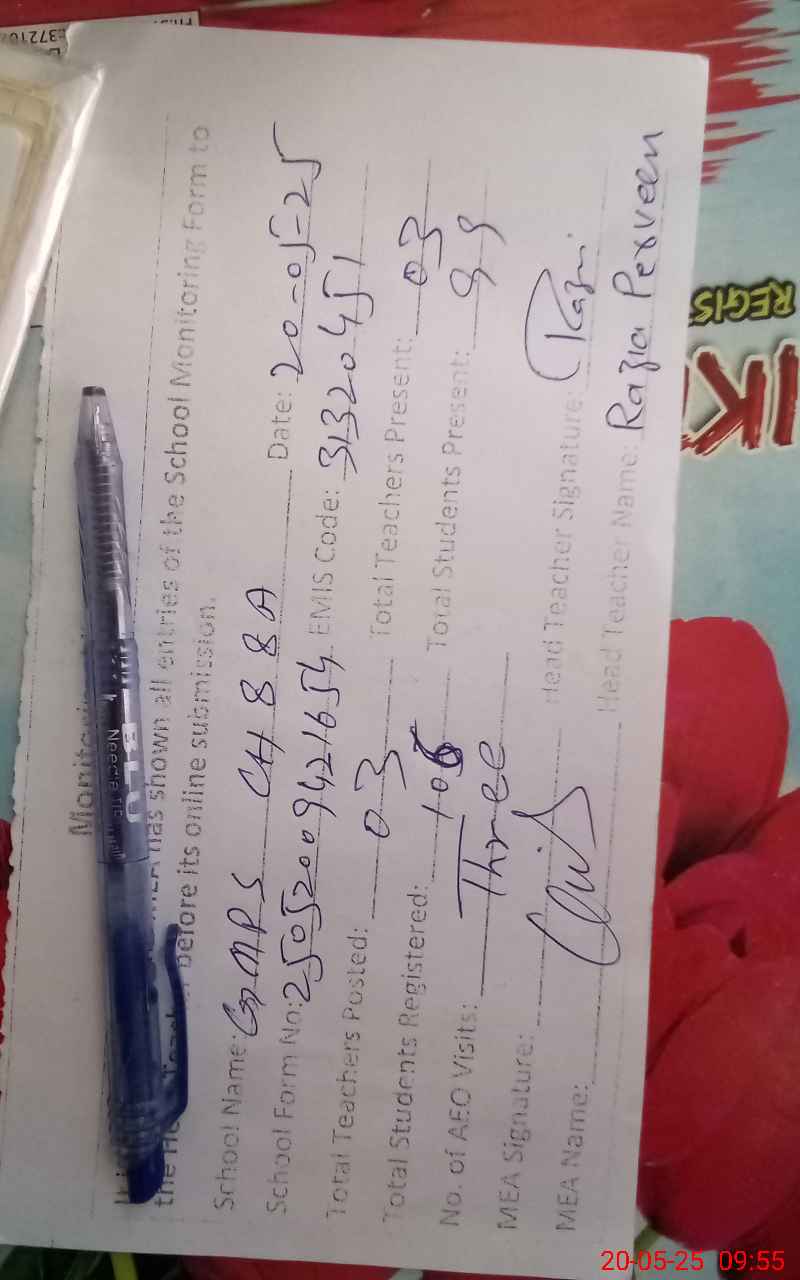 Monitor
has shown all entries of the School Monitoring Form to
before its online submission.
School Name: GMPS CH 88A Date: 20-05-25
School Form No: 25052009421654 EMIS Code: 31320451
Total Teachers Posted: 03 Total Teachers Present: 03
Total Students Registered: 106 Total Students Present: 99
No. of AEO Visits: Three
MEA Signature: Head Teacher Signature: Razi
MEA Name: Head Teacher Name: Razia Perveen
REGIS
20-05-25 09:55